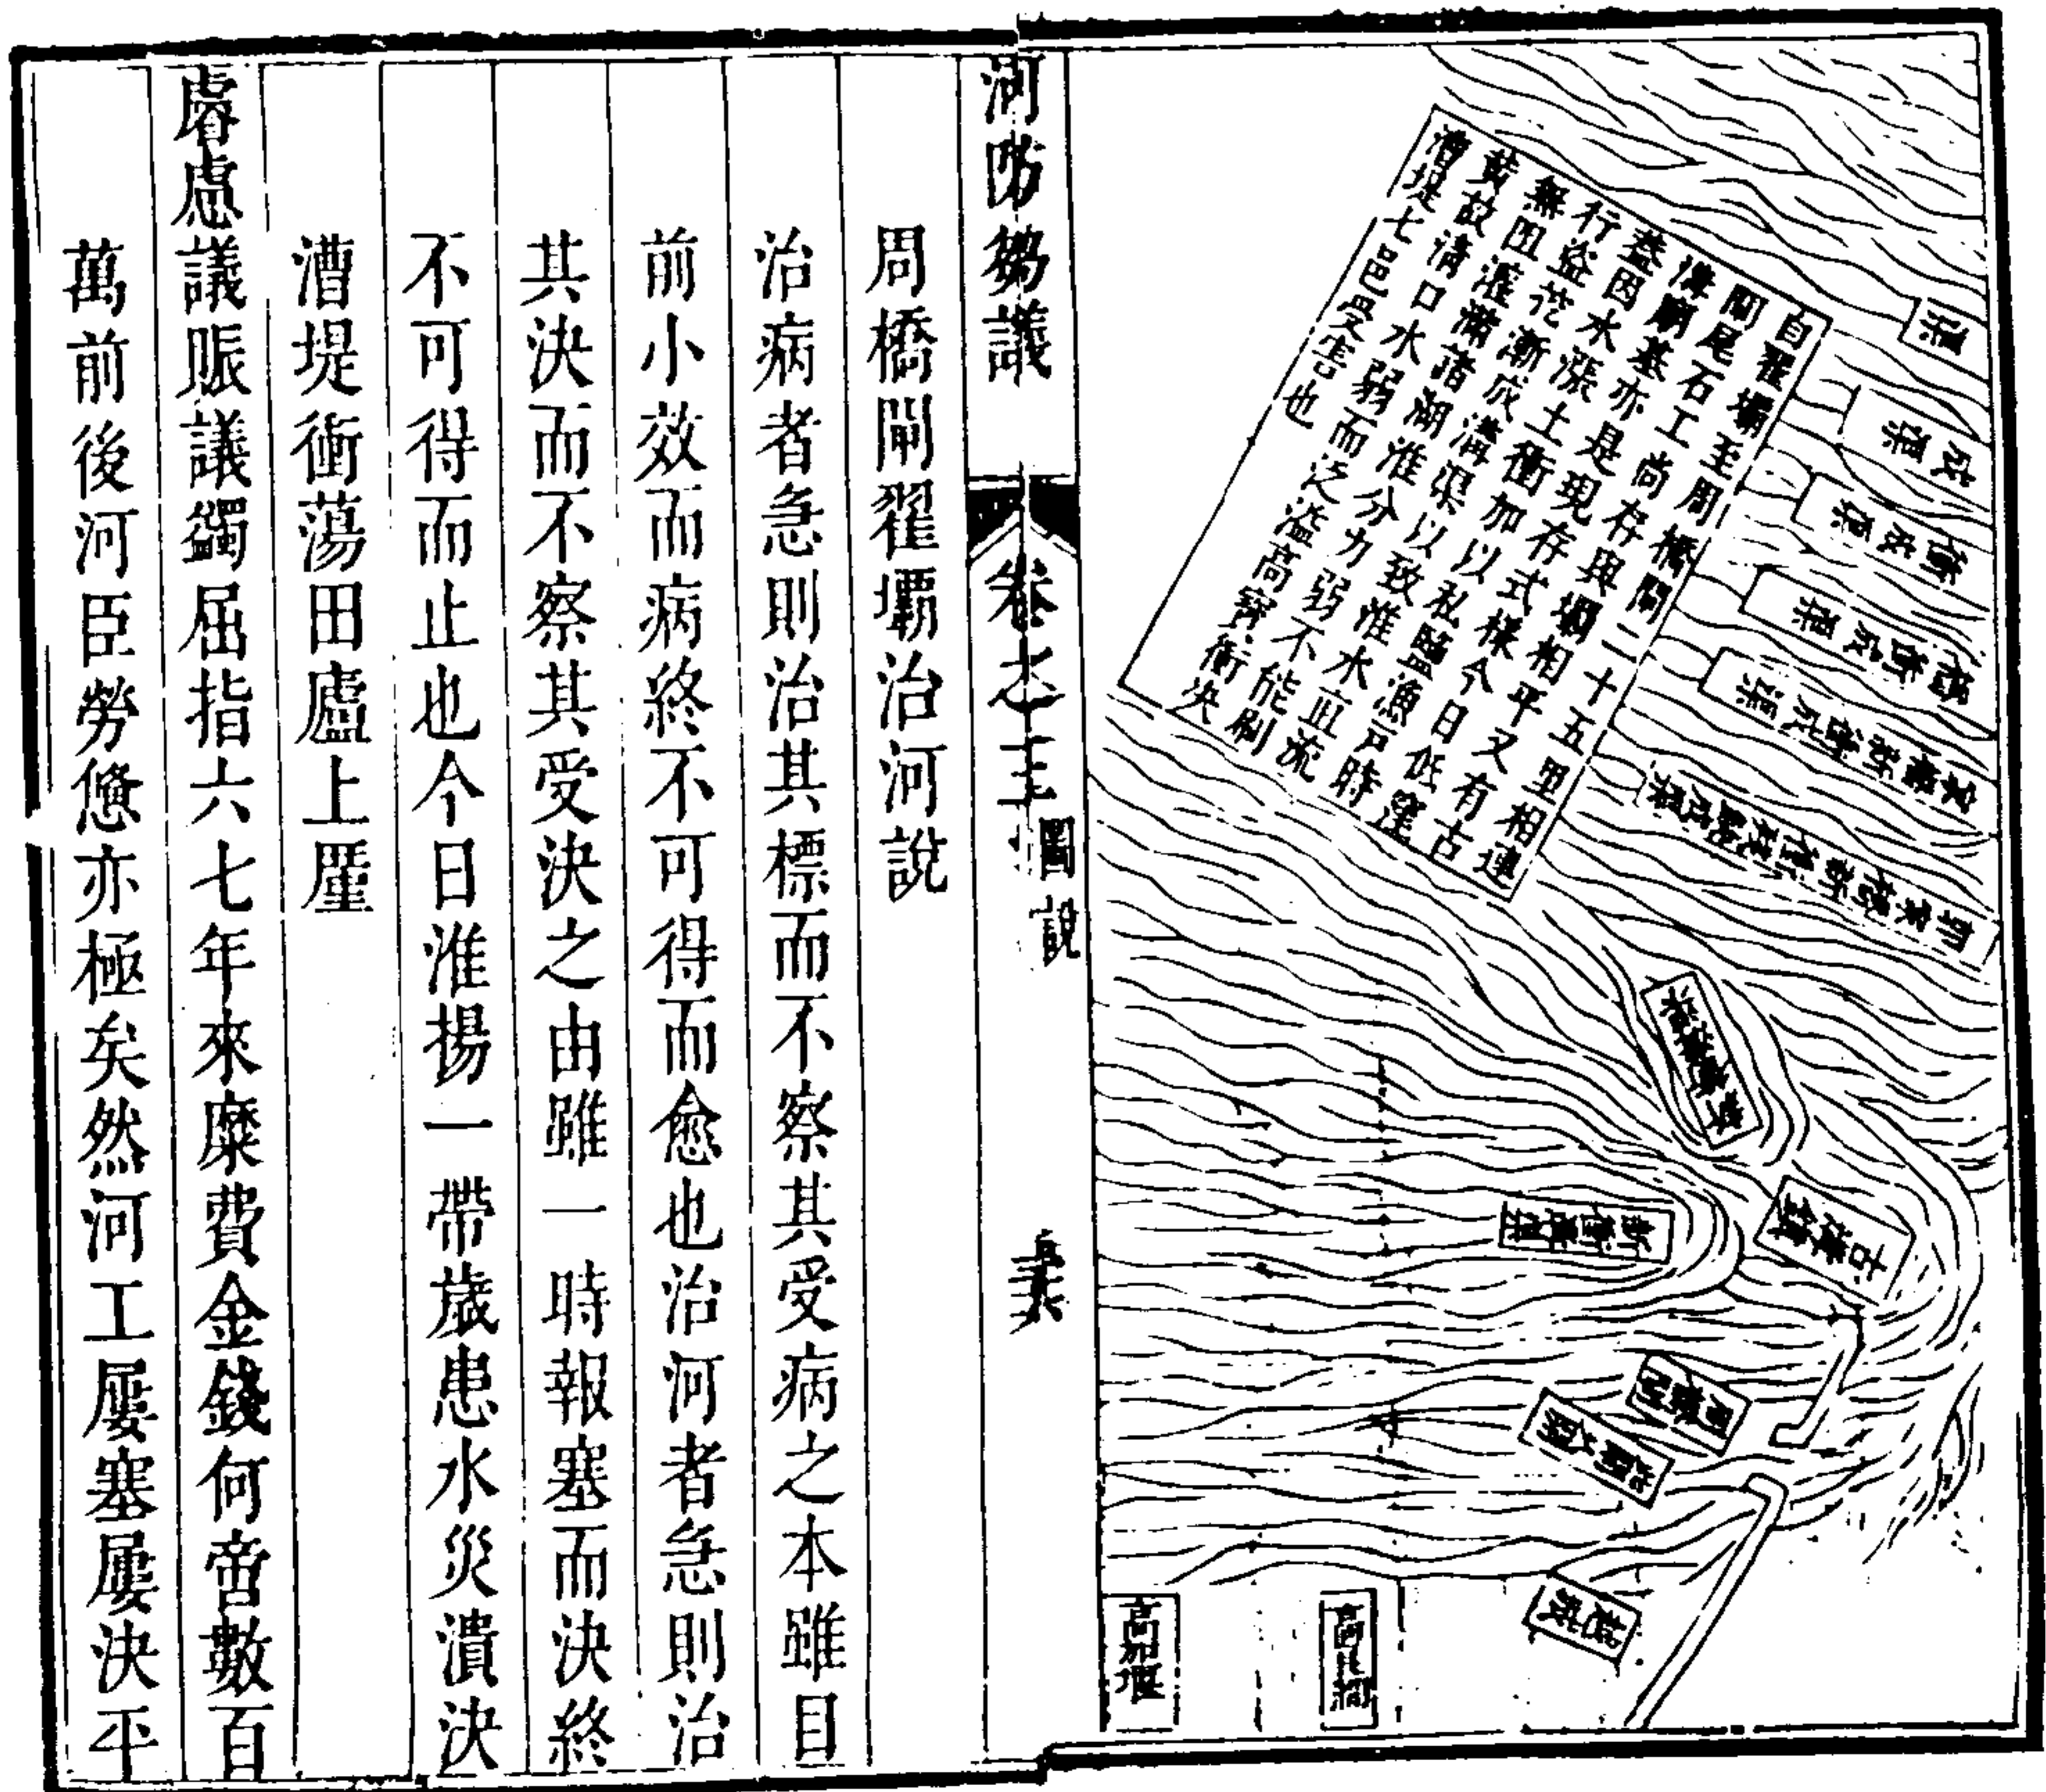 自翟壩至周橋閘二十五里相連
閘尾石工尚存與壩相平又有古
溝廟基亦是現存式樣今日低窪
蓋因水漲土衝加以私鹽漁戶時
行盜挖漸成溝渠以致淮水直流
無阻灌滿諸湖淮分力弱不能刷
黃故清口水弱而泛溢高寶衝決
漕堤七邑受害也
古溝鎮
周橋閘
高加堰
河防芻議
圖說
周橋閘翟壩治河說
治病者急則治其標而不察其受病之本雖目
前小效而病終不可得而愈也治河者急則治
其決而不察其受決之由雖一時報塞而決終
不可得而止也今日淮揚一帶歲患水災潰決
漕堤衝蕩田廬上厪
睿慮議賑議蠲屈指六七年來糜費金錢何啻數百
萬前後河臣勞憊亦極矣然河工屢塞屢決平